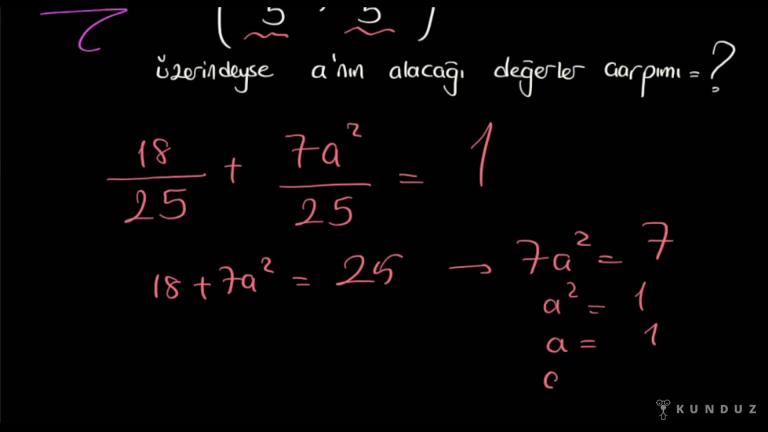 ( 5 , 5 )
üzerindeyse a'nın alacağı değerler çarpımı = ?
18/25 + 7a²/25 = 1
18 + 7a² = 25 → 7a² = 7
a² = 1
a = 1
KUNDUZ